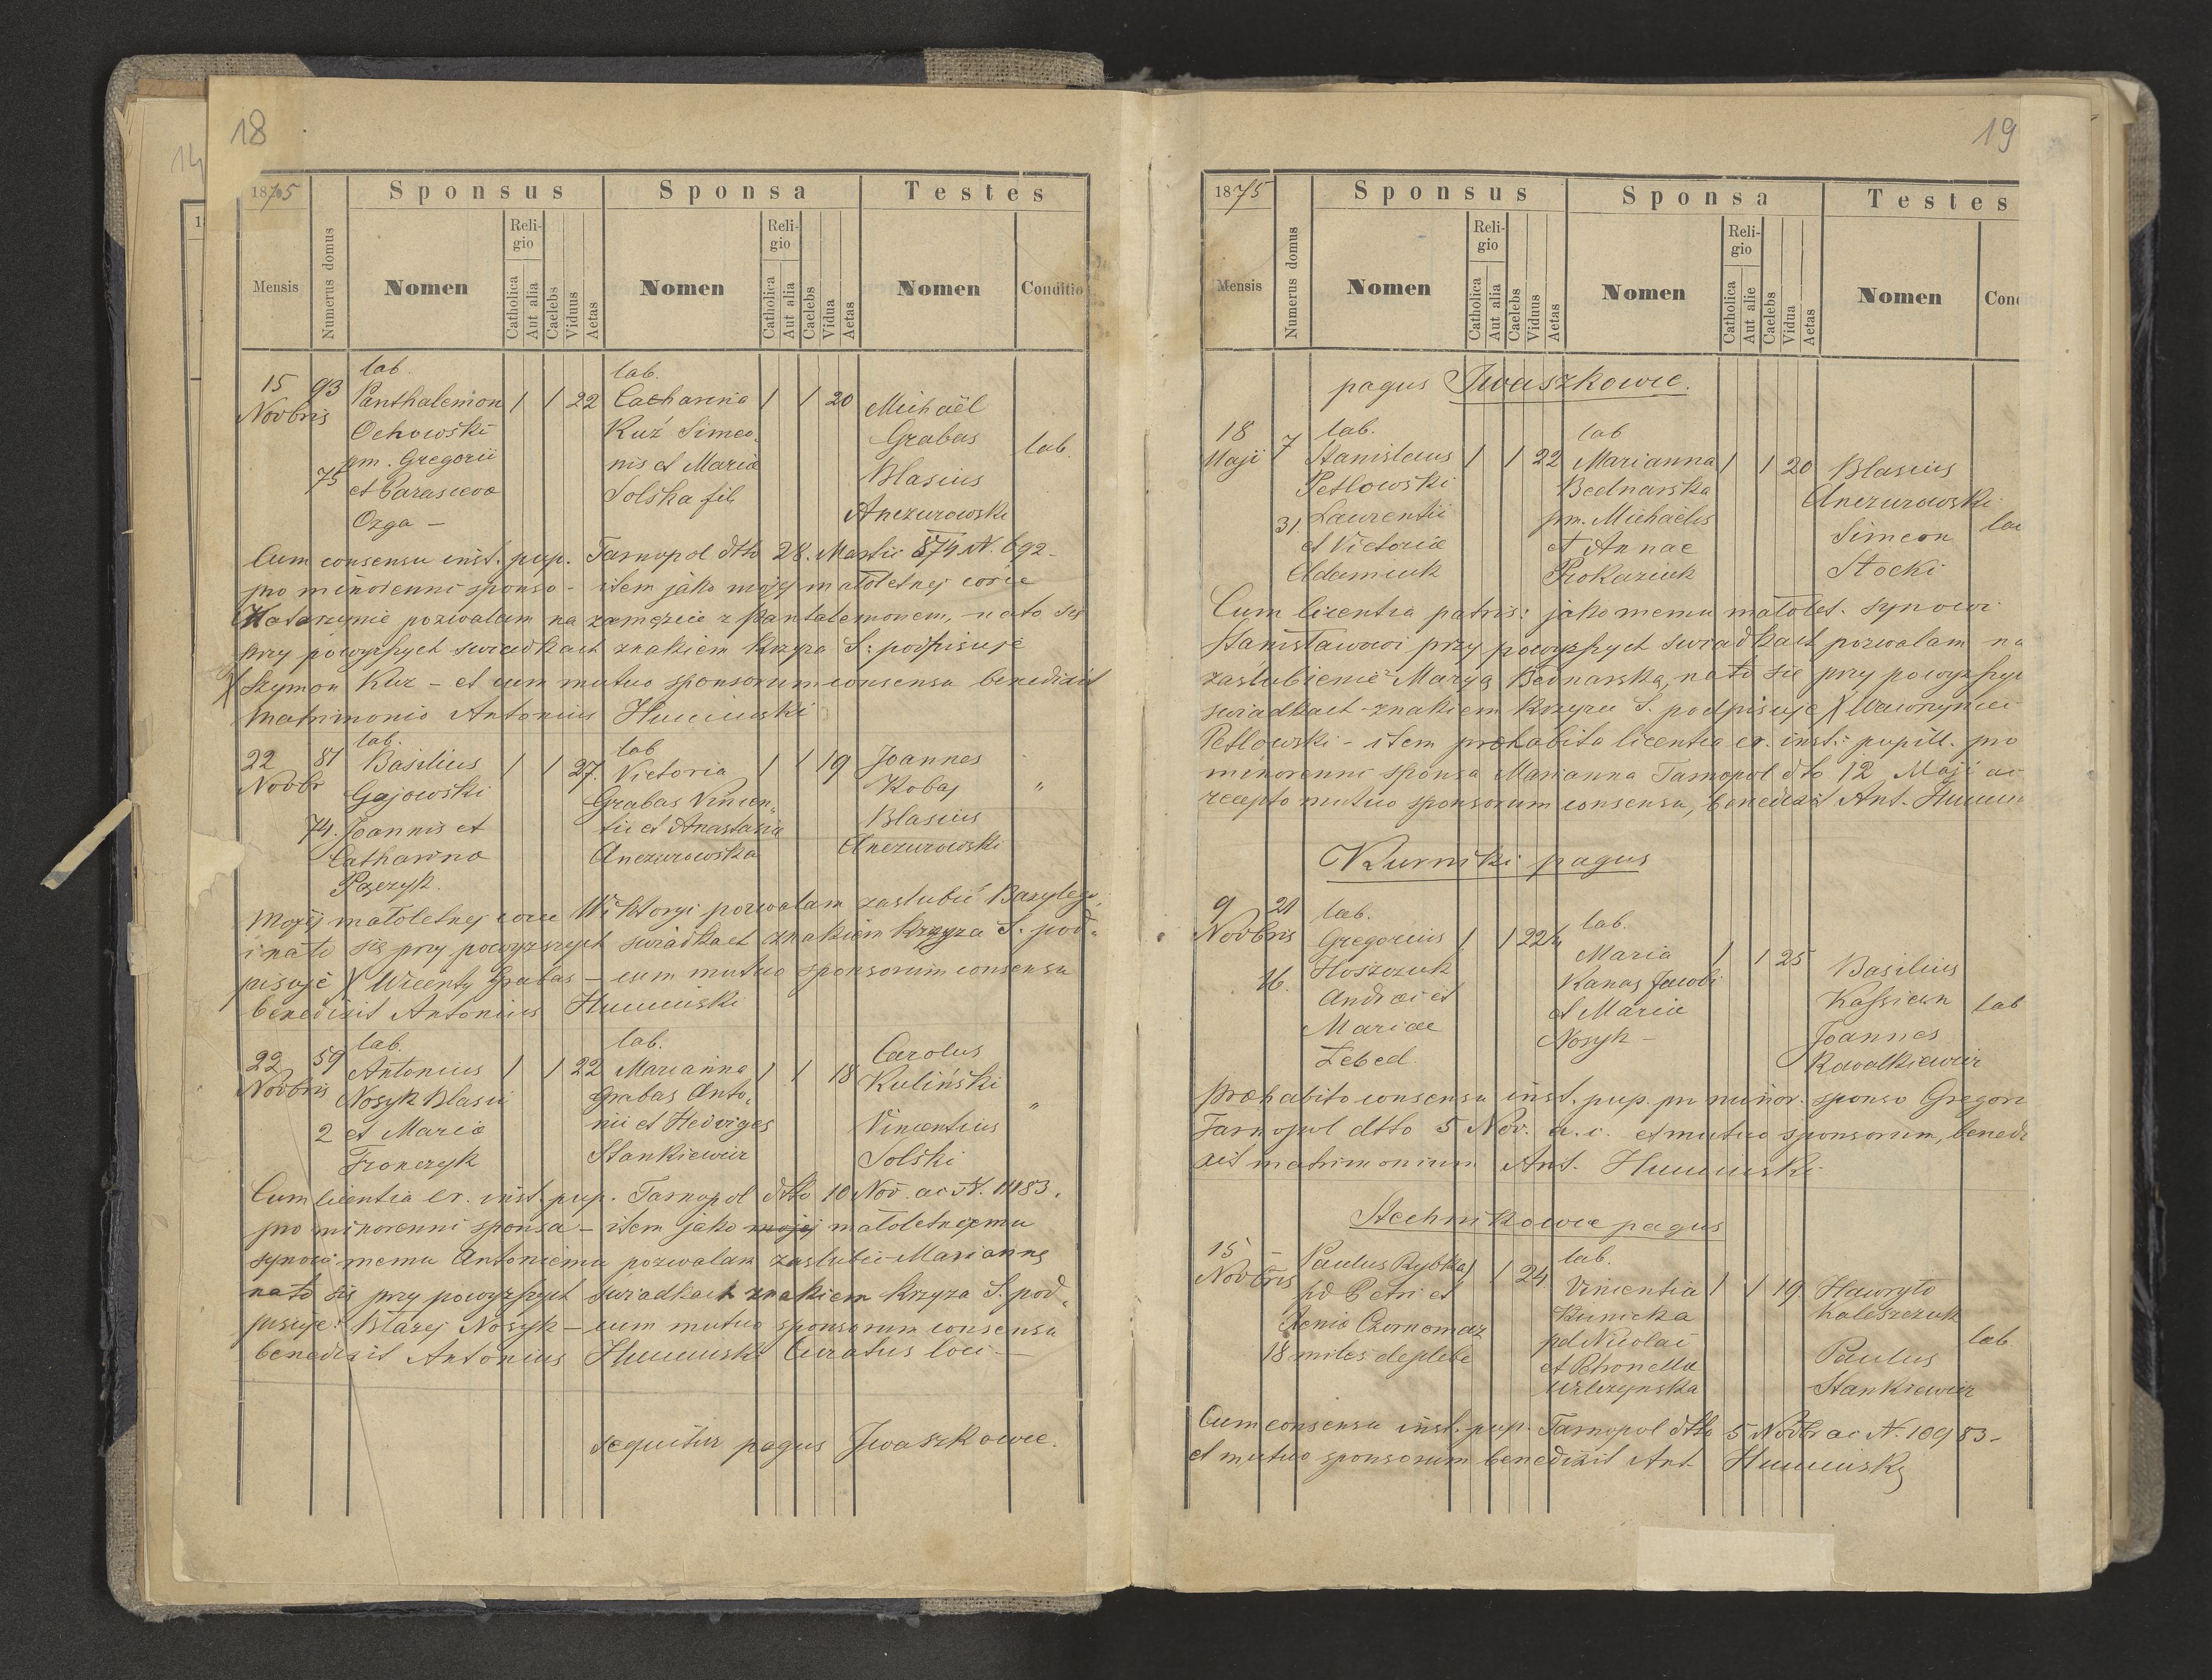 18
14
1875
Sponsus
Sponsa
Testes
Mensis
Numerus domus
Nomen
Religio
Catholica
Aut alia
Caelebs
Viduus
Aetas
Nomen
Religio
Catholica
Aut alia
Caelebs
Vidua
Aetas
Nomen
Conditio
15 Novbris 93 75
lab.
Panthalemon
Ochowski
pm. Gregorii
et Parascevæ
Ozga –
1 1 22
lab.
Catharina
Kuź Simeo,
nis et Mariæ
Solska fil
1 1 20
Michaël
Grabas
Blasius
Anczurowski
lab.
Cum consensu inst. pup. Tarnopol dtto 28. Martii 874 N. 692 –
pro minorenni sponso – item jako mojej małoletnej córce
Katarzynie pozwalam na zamęzcie z Pantalemonem, na to się
przy powyższych swiadkach znakiem Krzyza S: podpisuje
X Szymon Kuz – et cum mutuo sponsorum consensu benedixit
matrimonio Antonius
22 Novbr 81 74.
lab.
Basilius
Gajowski
Joannis et
Catharinæ
Pączyk.
1 1 27.
lab
Victoria
Grabas Vincen,
tii et Anastasia
Anczurowska
1 1 19
Joannes
Kobaj
Blasius
Anczurowski
"
Mojej małoletnej corce Wiktoryi pozwalam zaslubić Bazylego,
i na to się przy powyzszych swiadkach znakiem Krzyza S. pod-
pisuje X Wicenty Grabas – cum mutuo sponsorum consensu
benedixit Antonius
22 Novbris 59 2
lab.
Antonius
Nosyk Blasii
et Mariæ
Fronczyk
1 1 22
lab.
Marianna
Grabas Anto,
nii et Hedviges
Stankiewicz
1 1 18
Carolus
Kuliński
Vincentius
Solski
"
Cum licentia cr. inst. pup. Tarnopol dtto 10 Nov. ac N. 11183.
pro minorenni sponsa – item jako mojej małoletnejemu
synowi memu Antoniemu pozwalam zaslubić Mariannę
na to się przy powyższych swiadkach znakiem Krzyza S. pod,
pisuje: Błazej Nosyk – cum mutuo sponsorum consensu
benedixit Antonius Curatus loci –
sequitur pagus Iwaszkowce.
19
1875
Sponsus
Sponsa
Testes
Mensis
Numerus domus
Nomen
Religio
Catholica
Aut alia
Caelebs
Viduus
Aetas
Nomen
Religio
Catholica
Aut alie
Caelebs
Vidua
Aetas
Nomen
Cond
pagus Iwaszkowce.
18 Maji 7 31.
lab.
Stanislaus
Petlowski
Laurentii
et Victoriæ
Adamczuk
1 1 22
lab
Marianna
Bednarska
pm. Michaelis
et Annae
Prokaziuk
1 1 20
Blasius
Anczurowski
Simeon
Stocki
Cum licentia patris: jako memu małolet. synowi
Stanisławowi przy powyższych swiadkach pozwalam na
zaslubienie Maryą Bednarską, na to się przy powyższyc
swiadkach znakiem Krzyza S. podpisuje X Wawrzyniec
Petlowski – item præhabita licentia cr. inst: pupill. pro
minorenni sponsa Marianna Tarnopol dto 12 Maji ac
recepto mutuo sponsorum consensu, benedixit Ant.
Kurniki pagus
9 Novbris 21 16.
lab.
Gregorius
Hoszczuk
Andreæ et
Mariae
Lebed.
1 1 22
lab.
Maria
Kanas Jacobi
et Mariæ
Nosyk –
1 1 25
Basilius
Kassian
Joannes
Kowalkiewicz
lab
Præhabito consensu inst. pup. pro minor. sponso Gregori
Tarnopol dtto 5 Nov. a. c. et mutuo sponsorum, benedi
xit matrimonium Ant.
Stechnikowce pagus
15 Novbris 18
Paulus Rybka
pd Petri et
Xenia Czornomaz
miles de plebe
1 1 24
lab.
Vincentia
Kunicka
pd Nicolai
et Petronella
Wilczynska
1 1 19
Hawryło
Haleszczuk
Paulus
Stankiewicz
lab
Cum consensu inst. pup. Tarnopol dtto 5 Novbr ac N. 10983 –
et mutuo sponsorum benedixit Ant.